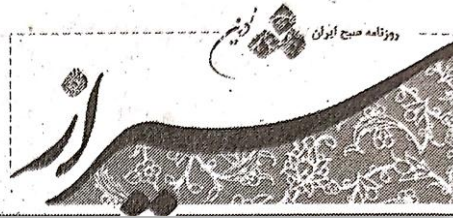 روزنامه صبح ایران
نوین
شیراز